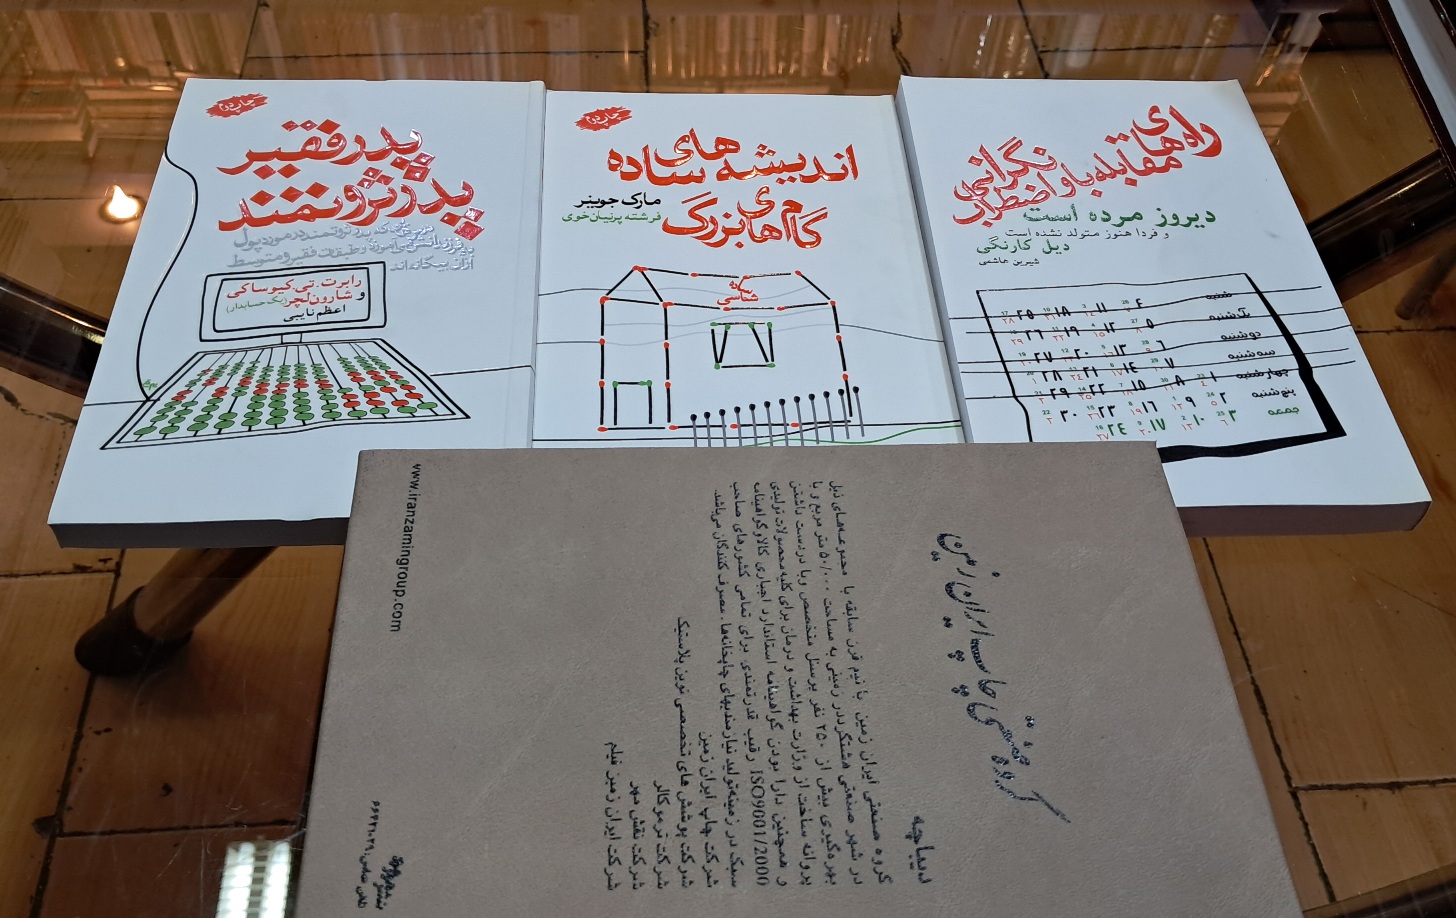 چاپ دوم
پدر فقیر
پدر ثروتمند
آزان بیگانه‌اند
رابرت.تی.کیوساکی
و شارون لچر (یک حسابدار)
اعظم نایبی
چاپ دوم
اندیشه های ساده
گام های بزرگ
مارک جوینر
فرشته پرنیان خوی
ساده شناسی
راه های مقابله با
نگرانی و اضطراب
دیروز مرده است
و فردا هنوز متولد نشده است
دیل کارنگی
شیرین هاشمی
شنبه ۴ ۱۱ ۱۸ ۲۵
یکشنبه ۵ ۱۲ ۱۹ ۲۶
دوشنبه ۶ ۱۳ ۲۰ ۲۷
سه شنبه ۷ ۱۴ ۲۱ ۲۸
چهارشنبه ۱ ۸ ۱۵ ۲۲ ۲۹
پنج‌شنبه ۲ ۹ ۱۶ ۲۳ ۳۰
جمعه ۳ ۱۰ ۱۷ ۲۴
گروه صنعتی چاپ ایران زمین
دیباچه
گروه صنعتی ایران زمین با نیم قرن سابقه با مجموعه‌های ذیل
در شهر صنعتی هشتگرد در زمینی به مساحت ۵۰/۰۰۰ متر مربع و با
بهره‌گیری بیش از ۲۵۰ نفر پرسنل متخصص و با در دست داشتن
پروانه ساخت از وزارت بهداشت و درمان برای کلیه محصولات تولیدی
و همچنین دارا بودن گواهینامه استاندارد اجباری کالا و گواهینامه
ISO9001/2000 رقیب قدرتمندی برای تمامی کشورهای صاحب
سبک در زمینه تولید نیازمندیهای چاپخانه‌ها، مصرف کنندگان می‌باشد.
شرکت چاپ ایران زمین
شرکت پوشش های تخصصی نوین پلاستیک
شرکت ترموکالر
شرکت نقش مهر
شرکت ایران زمین فیلم
www.iranzamingroup.com
تلفن تماس: ۶۶۴۲۱۰۲۹